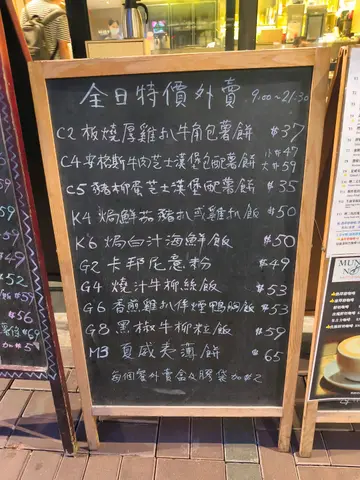 全日特價外賣 9:00~21:30
C2 板燒厚雞扒牛角包薯餅 $37
C4 安格斯牛肉芝士漢堡包配薯餅 小$47 大$59
C5 豬柳蛋芝士漢堡配薯餅 $35
K4 焗鮮茄豬扒或雞扒飯 $50
K6 焗白汁海鮮飯 $50
G2 卡邦尼意粉 $49
G4 燒汁牛柳絲飯 $53
G6 香煎雞扒伴煙鴨胸飯 $53
G8 黑椒牛柳粒飯 $59
M3 夏威夷薄餅 $65
每個餐外賣盒及膠袋加$2